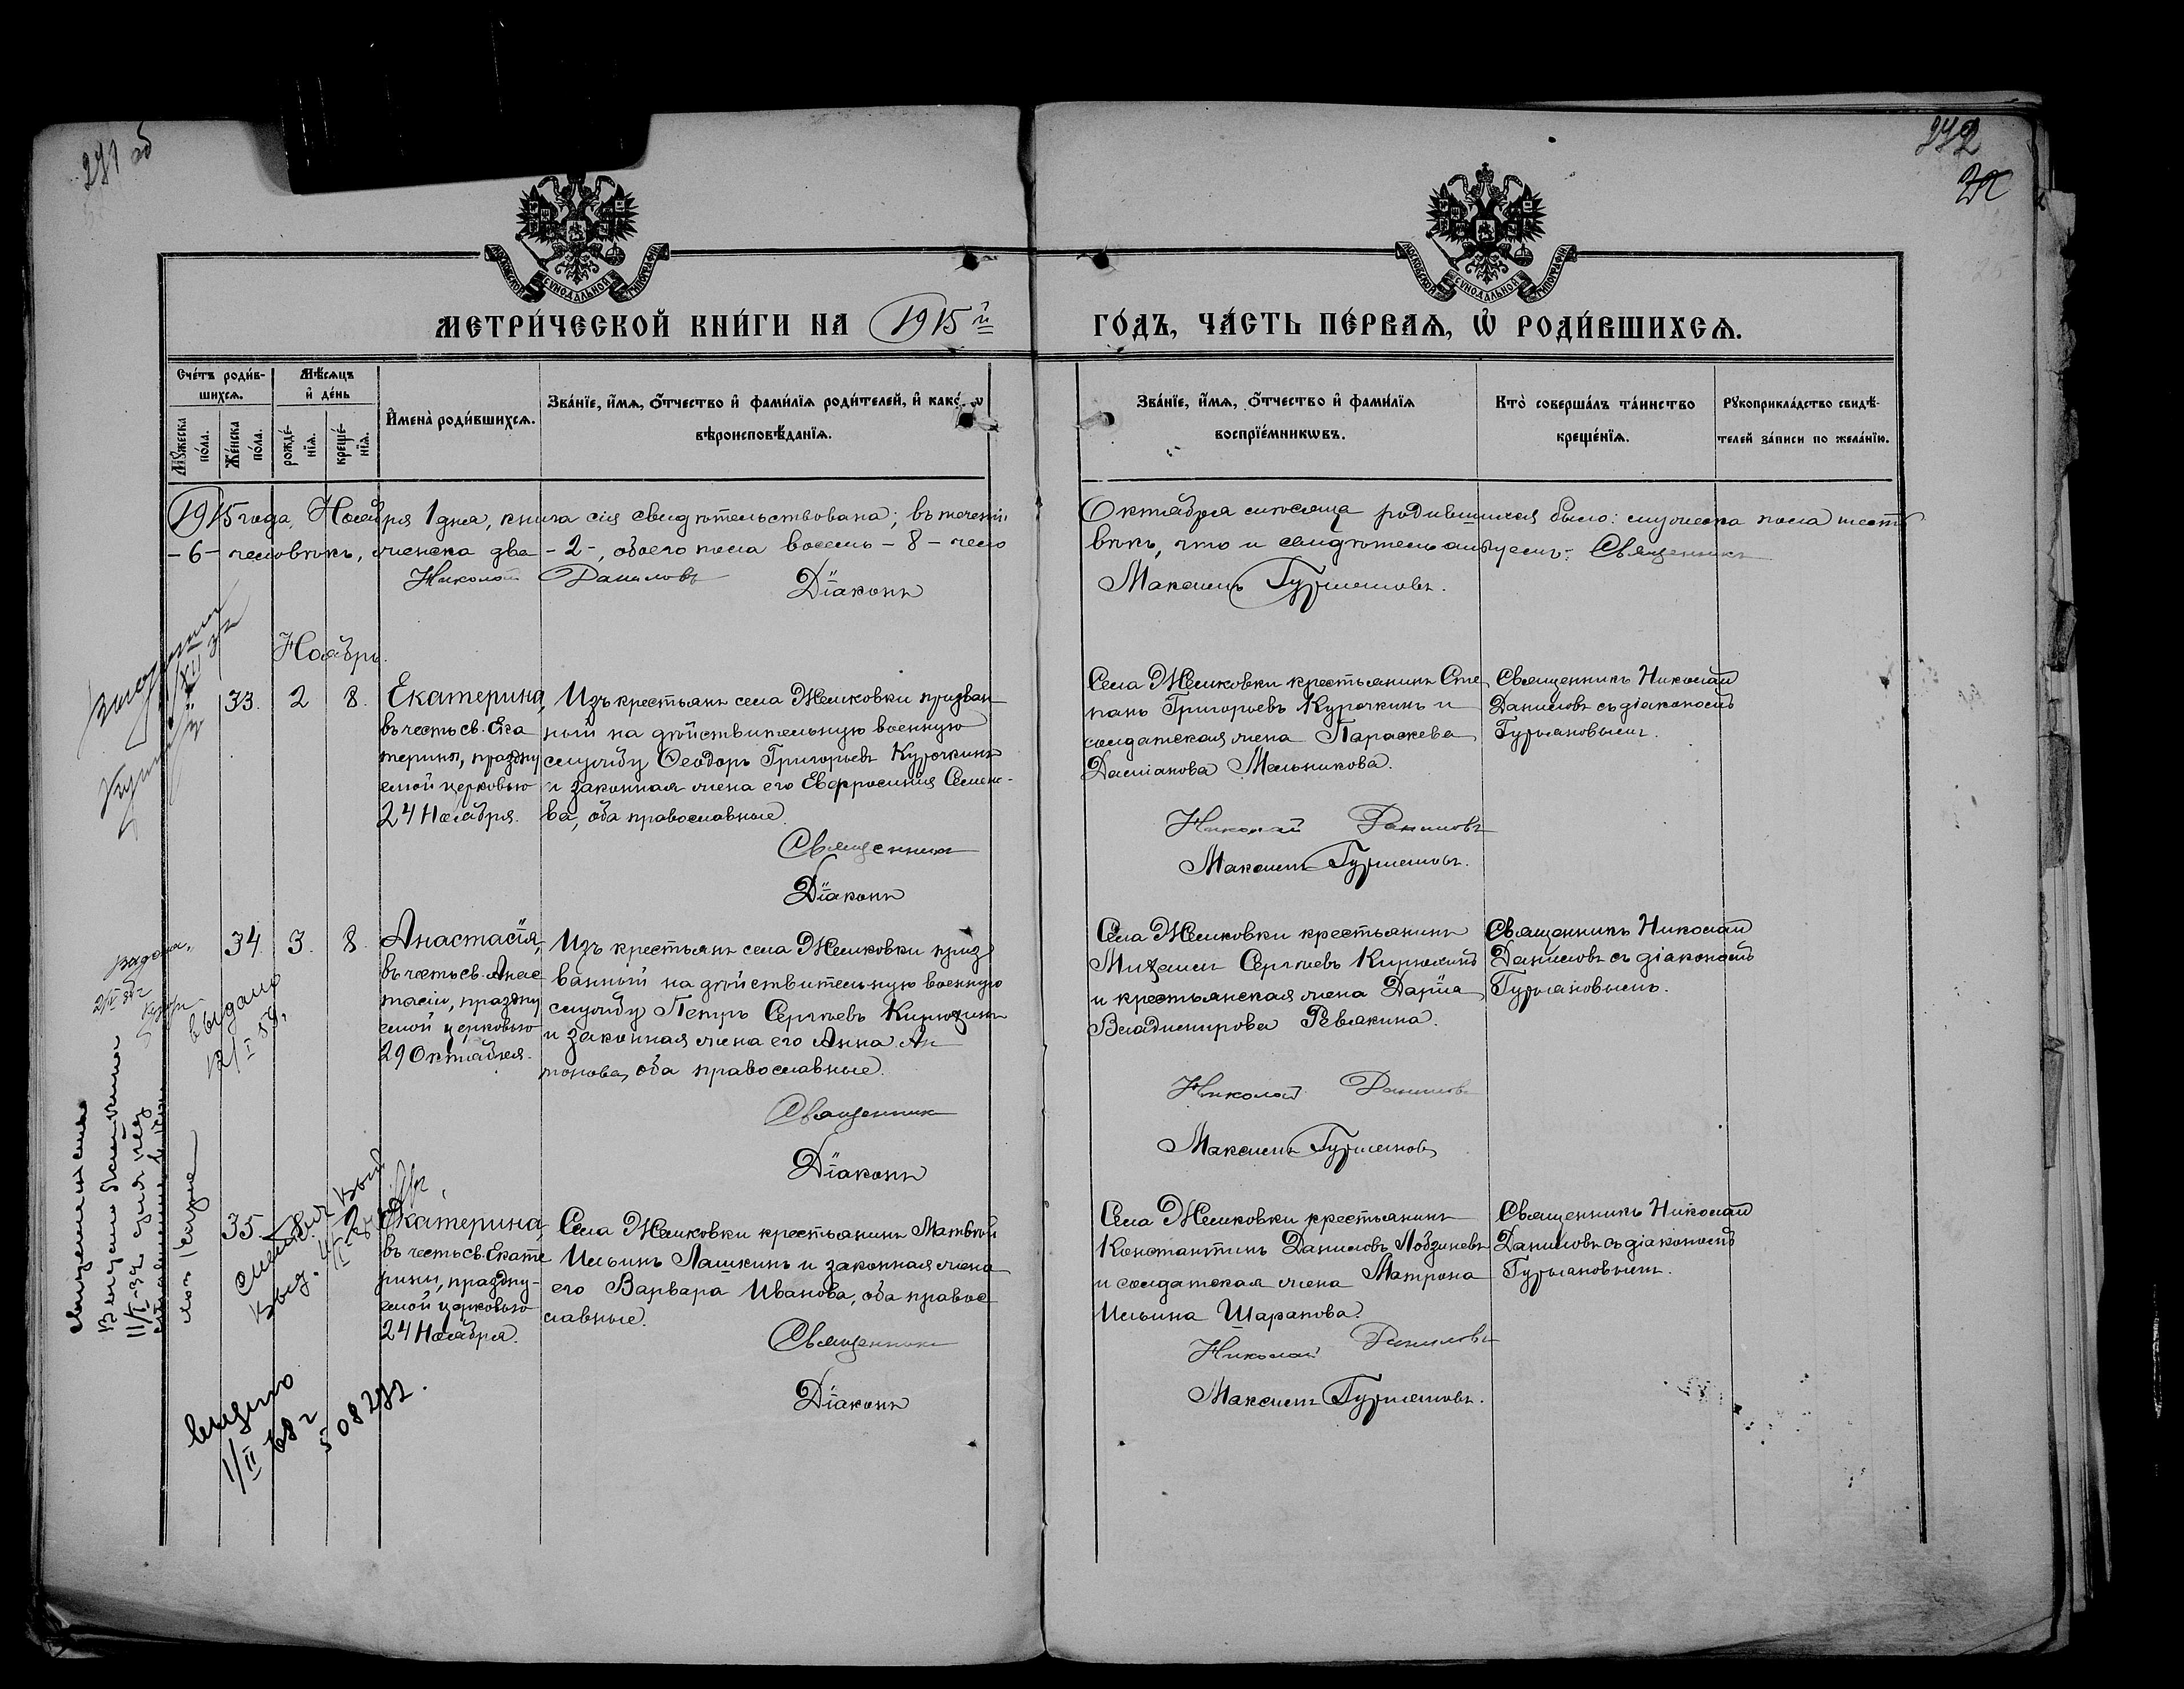 271 об
272
МЕТРИ́ЧЕСКОЙ КНИ́ГИ НА 1915й ГО́ДЪ, ЧА́СТЬ ПЕ́РВАѦ, Ѡ҆ РОДИ́ВШИХСѦ.
МОСКОВСКОЙ СѴНОДАЛЬНОЙ ТИПОГРАФІИ
МОСКОВСКОЙ СѴНОДАЛЬНОЙ ТИПОГРАФІИ
Сче́тъ роди́в-
шихсѧ.
Мꙋ́жеска
по́ла.
Же́нска
по́ла.
Мѣ́сѧцъ
и҆ де́нь
рожде́-
нїѧ.
креще́-
нїѧ.
И҆мена̀ роди́вшихсѧ.
Зва́нїе, и҆́мѧ, ѻ҆́тчество и҆ фами́лїѧ роди́телей, и҆
вѣроисповѣ́данїѧ.
Зва́нїе, и҆́мѧ, ѻ҆́тчество и҆ фами́лїѧ
воспрїе́мникѡвъ.
Кто̀ соверша́лъ та́инство
креще́нїѧ.
Рꙋкоприкла́дство свидѣ́-
телей за́писи по жела́нїю.
1915 года, Ноября 1 дня, книга сія свидѣтельствована; въ теченіи Октября мѣсяца родившихся было: мужеска пола шесть
-6- человѣкъ, женска два -2-, обоего пола восемь -8- чело
вѣкъ, что и свидѣтельствуемъ: Священникъ
Николай Даниловъ Діаконъ Максимъ Гурьяновъ.
Ноябрь.
33. 2 8. Екатерина,
въ честь св. Ека
терины, праздну
емой церковью
24 Ноября.
Изъ крестьянъ села Жмаковки призван
ный на дѣйствительную военную
службу Ѳеодоръ Григорьевъ Курочкинъ
и законная жена его Евфросинія Семено-
ва, оба православные.
Священникъ
Діаконъ
Села Жмаковки крестьянинъ Сте
панъ Григорьевъ Курочкинъ и
солдатская жена Параскева
Даміанова Мельникова.
Николай Даниловъ
Максимъ Гурьяновъ.
Священникъ Николай
Даниловъ съ діакономъ
Гурьяновымъ.
34. 3. 8. Анастасія,
въ честь св. Анас
тасіи, праздну
емой церковью
29 Октября.
Изъ крестьянъ села Жмаковки приз
ванный на дѣйствительную военную
службу Петръ Сергѣевъ Кирюхинъ
и законная жена его Анна Ан
тонова, оба православные.
Священникъ
Діаконъ
Села Жмаковки крестьянинъ
Михаилъ Сергѣевъ Кирюхинъ
и крестьянская жена Дарія
Владимирова Ревякина.
Николай Даниловъ
Максимъ Гурьяновъ
Священникъ Николай
Даниловъ съ діакономъ
Гурьяновымъ.
выдано
12/I 59.
35. Екатерина,
въ честь св. Екате
рины, праздну-
емой церковью
24 Ноября.
Села Жмаковки крестьянинъ Матвѣй
Ильинъ Лашкинъ и законная жена
его Варвара Иванова, оба правос
лавные.
Священникъ
Діаконъ
Села Жмаковки крестьянинъ
Константинъ Даниловъ Лобзиневъ
и солдатская жена Матрона
Ильина Шарапова.
Николай Даниловъ
Максимъ Гурьяновъ.
Священникъ Николай
Даниловъ съ діакономъ
Гурьяновымъ.
выдано
1/II 68 г